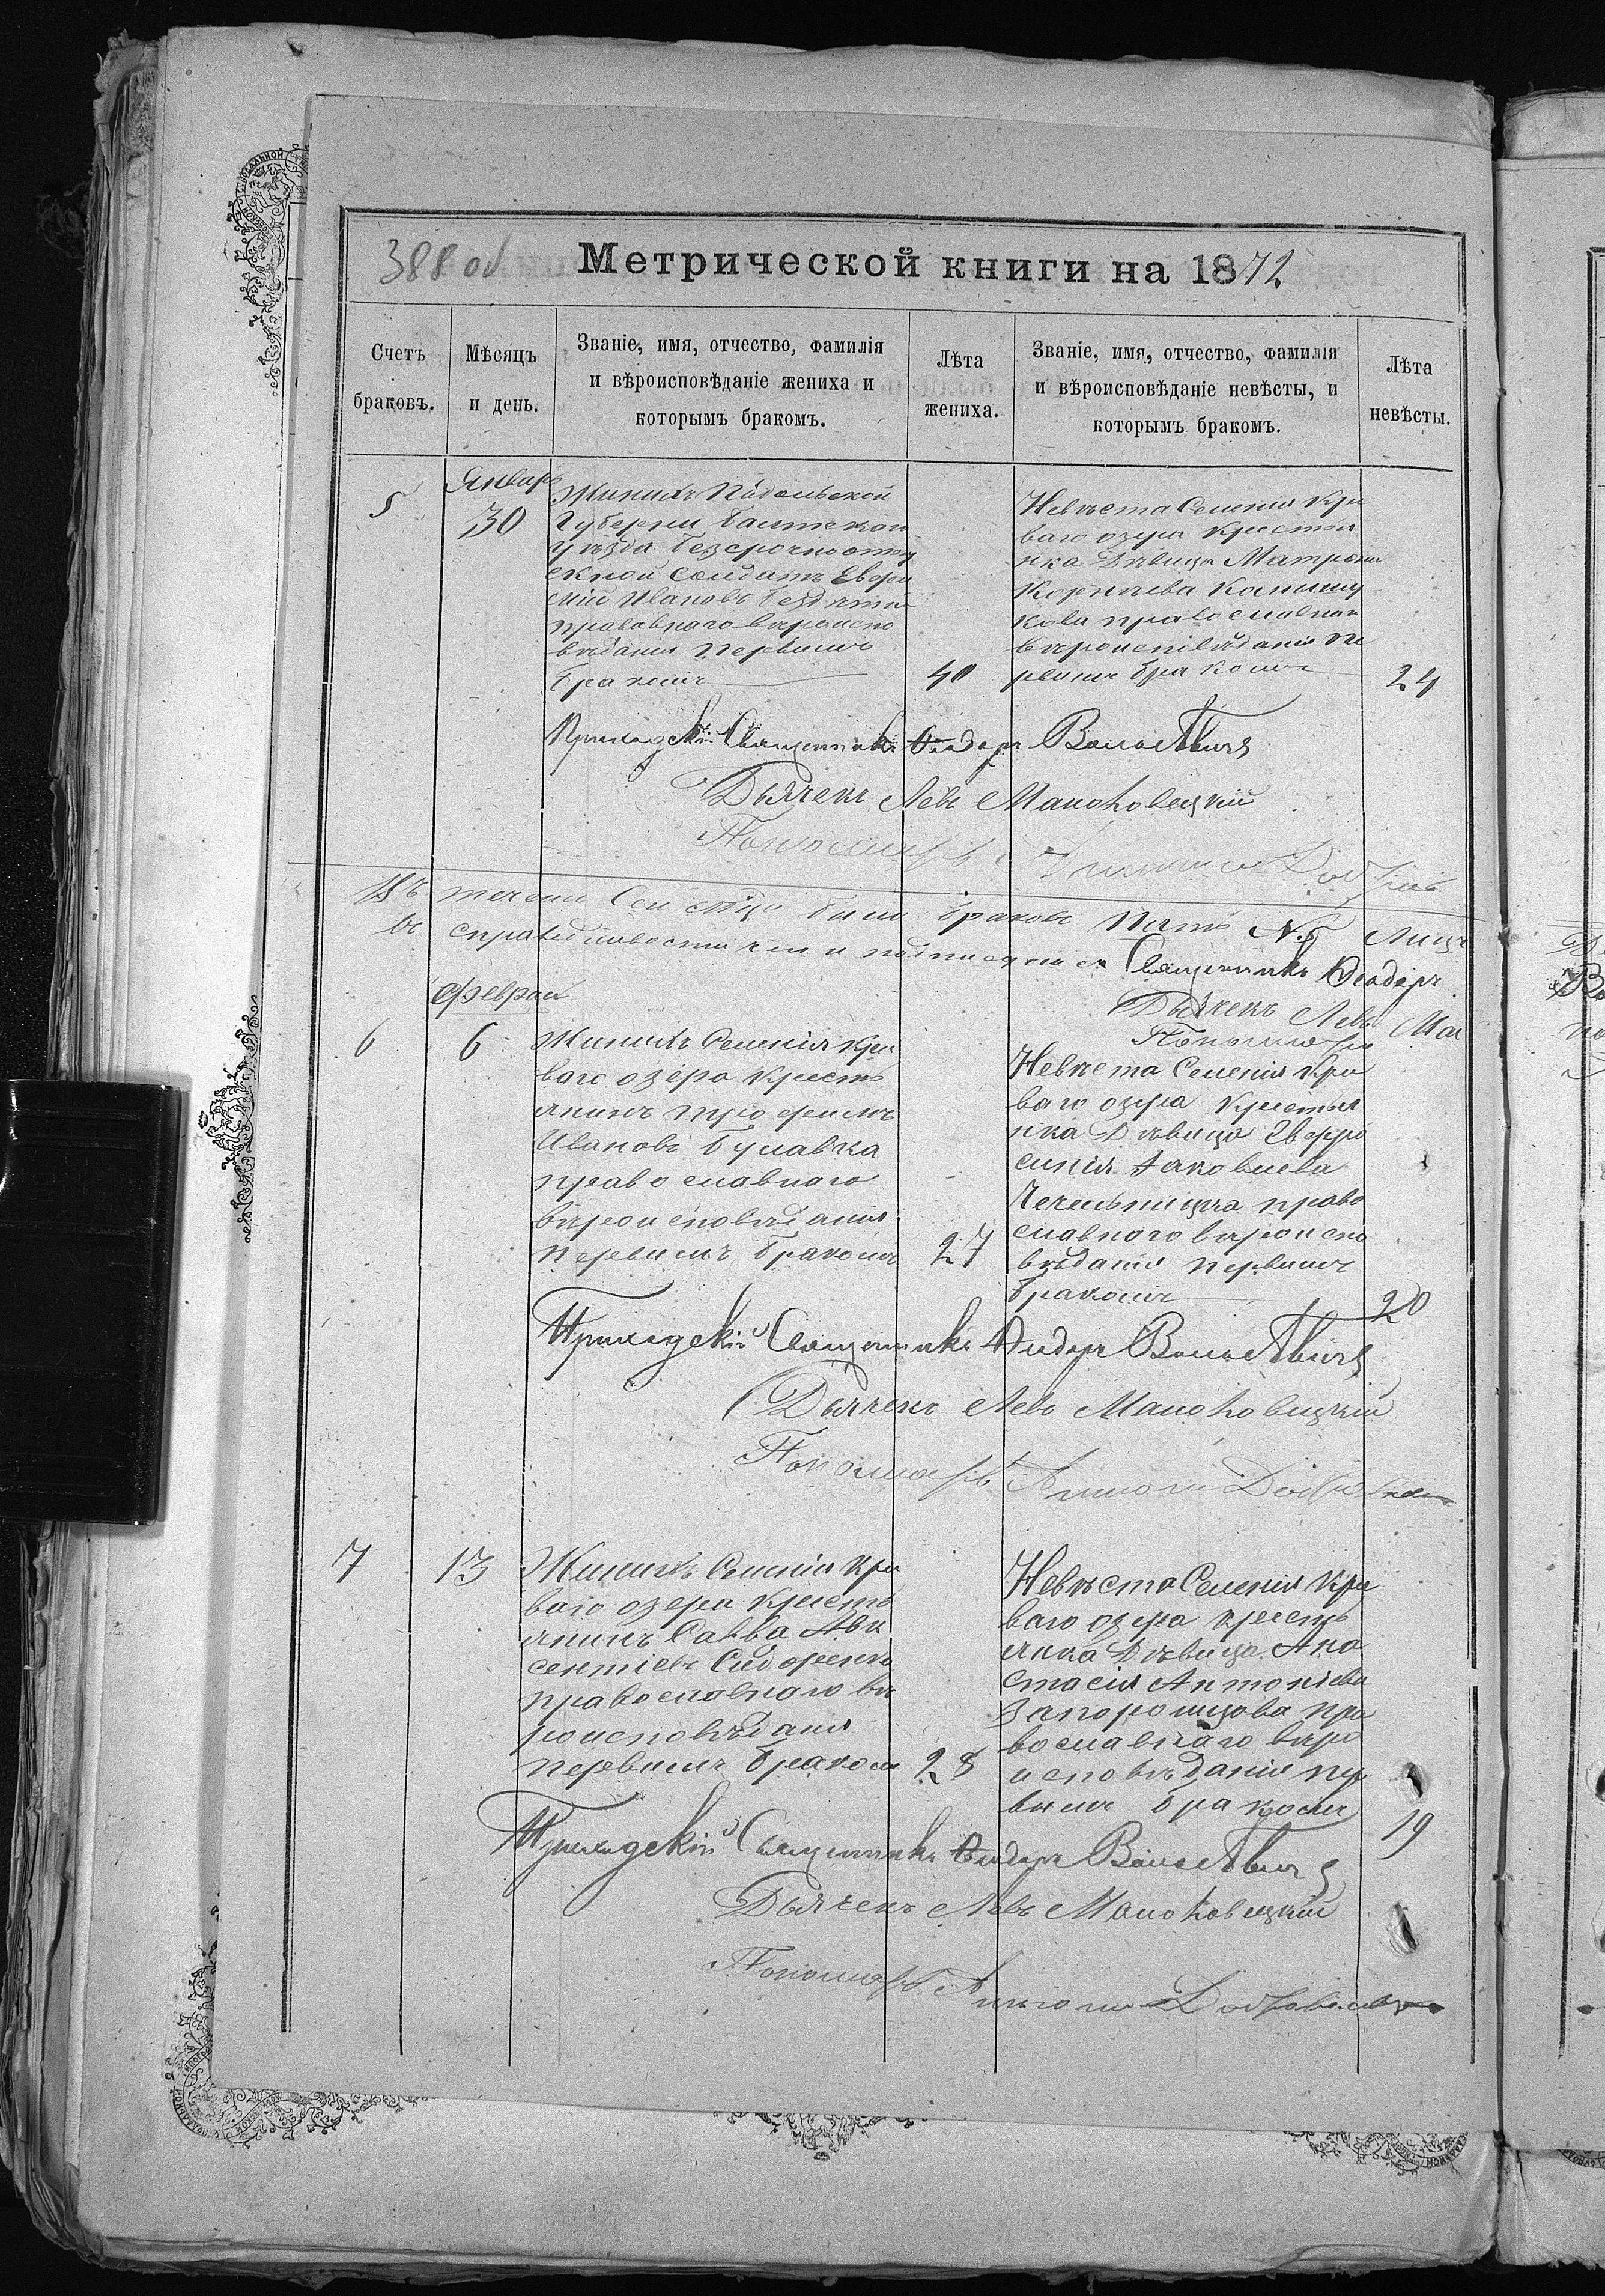 388 об
Метрической книги на 1872
Счетъ браковъ.
Мѣсяцъ и день.
Званіе, имя, отчество, фамилія
и вѣроисповѣданіе жениха и
которымъ бракомъ.
Лѣта жениха.
Званіе, имя, отчество, фамилія
и вѣроисповѣданіе невѣсты, и
которымъ бракомъ.
Лѣта невѣсты.
Январь
5
30
Жинихъ Подольской
Губерни Балтской
уѣзда безсрочноотпу
скной Солдатъ Евфи
мій Ивановъ
правовнаго вѣроиспо
вѣдания первимъ
бракомъ
40
Невѣста Селения Кри
ваго озера Крестья
нка Дѣвица Матрона
Корнѣева
кова православнаго
вѣроисповѣдания пе
рвимъ бракомъ
24
Приходскій Священникъ Феодоръ
Дьячекъ Левъ Маньковецкій
Пономарь
Въ течени Сей было браковъ Пять № 5
въ справедливости чего и подписуемся Священникъ Феодоръ
Дьячекъ Левъ Мань
Пономарь
Феврал
6
6
Жинихъ Селения Кри
ваго озера Кресть
янинъ Трофимъ
Ивановъ Булавка
православнаго
вѣроисповѣдания
первимъ бракомъ
27
Невѣста Селения Кри
ваго озера Крестья
нка Дѣвица Евфро
синия Яковлева
Чечельницка право
славнаго вѣроиспо
вѣдания первимъ
бракомъ
20
Приходскій Священникъ Феодоръ
Дьячекъ Левъ Маньковецкій
Пономарь
7
13
Жинихъ Селения Кри
ваго озера Кресть
янинъ Савва Авк
сентіевъ Сидоренко
православнаго вѣ
роисповѣдания
первимъ браком
28
Невѣста Селения Кри
ваго озера кресть
янка Дѣвица Ана
стасия Антониева
Запорожцова пра
вославнаго вѣро
исповѣдания пер
вимъ бракомъ
19
Приходскій Священникъ Феодоръ
Дьячекъ Левъ Маньковецкій
Пономарь